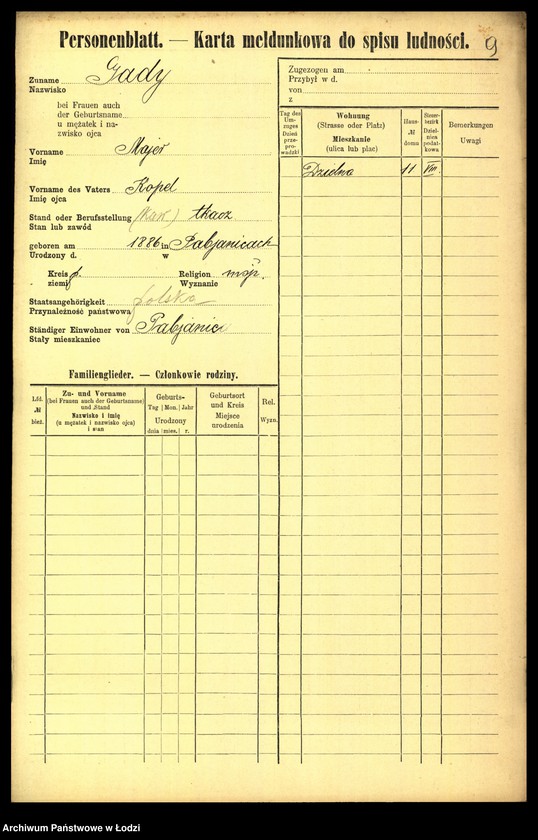 Personenblatt. — Karta meldunkowa do spisu ludności.
9
Zuname Gady
Nazwisko
bei Frauen auch
der Geburtsname
u mężatek i na-
zwisko ojca
Vorname Majer
Imię
Vorname des Vaters Kopel
Imię ojca
Stand oder Berufsstellung (kaw.) tkacz
Stan lub zawód
geboren am 1886 in Pabjanicach
Urodzony d. w
Kreis Religion mojż.
ziemi Wyznanie
Staatsangehörigkeit polska
Przynależność państwowa
Ständiger Einwohner von Pabjanic
Stały mieszkaniec
Familienglieder. — Członkowie rodziny.
Lfd.
№
bież.
Zu- und Vorname
(bei Frauen auch der Geburtsname)
und Stand
Nazwisko i imię
(u mężatek i nazwisko ojca)
i stan
Geburts-
Tag | Mon. | Jahr
Urodzony
dnia | mies. | r.
Geburtsort
und Kreis
Miejsce
urodzenia
Rel.
Wyzn.
Zugezogen am
Przybył w d.
von
z
Tag des
Um-
zuges
Dzień
prze-
prowadzki
Wohnung
(Strasse oder Platz)
Mieszkanie
(ulica lub plac)
Haus-
№
domu
Steuer-
bezirk
Dziel-
nica
podat-
kowa
Bemerkungen
Uwagi
Dzielna 11 VIII.
Archiwum Państwowe w Łodzi